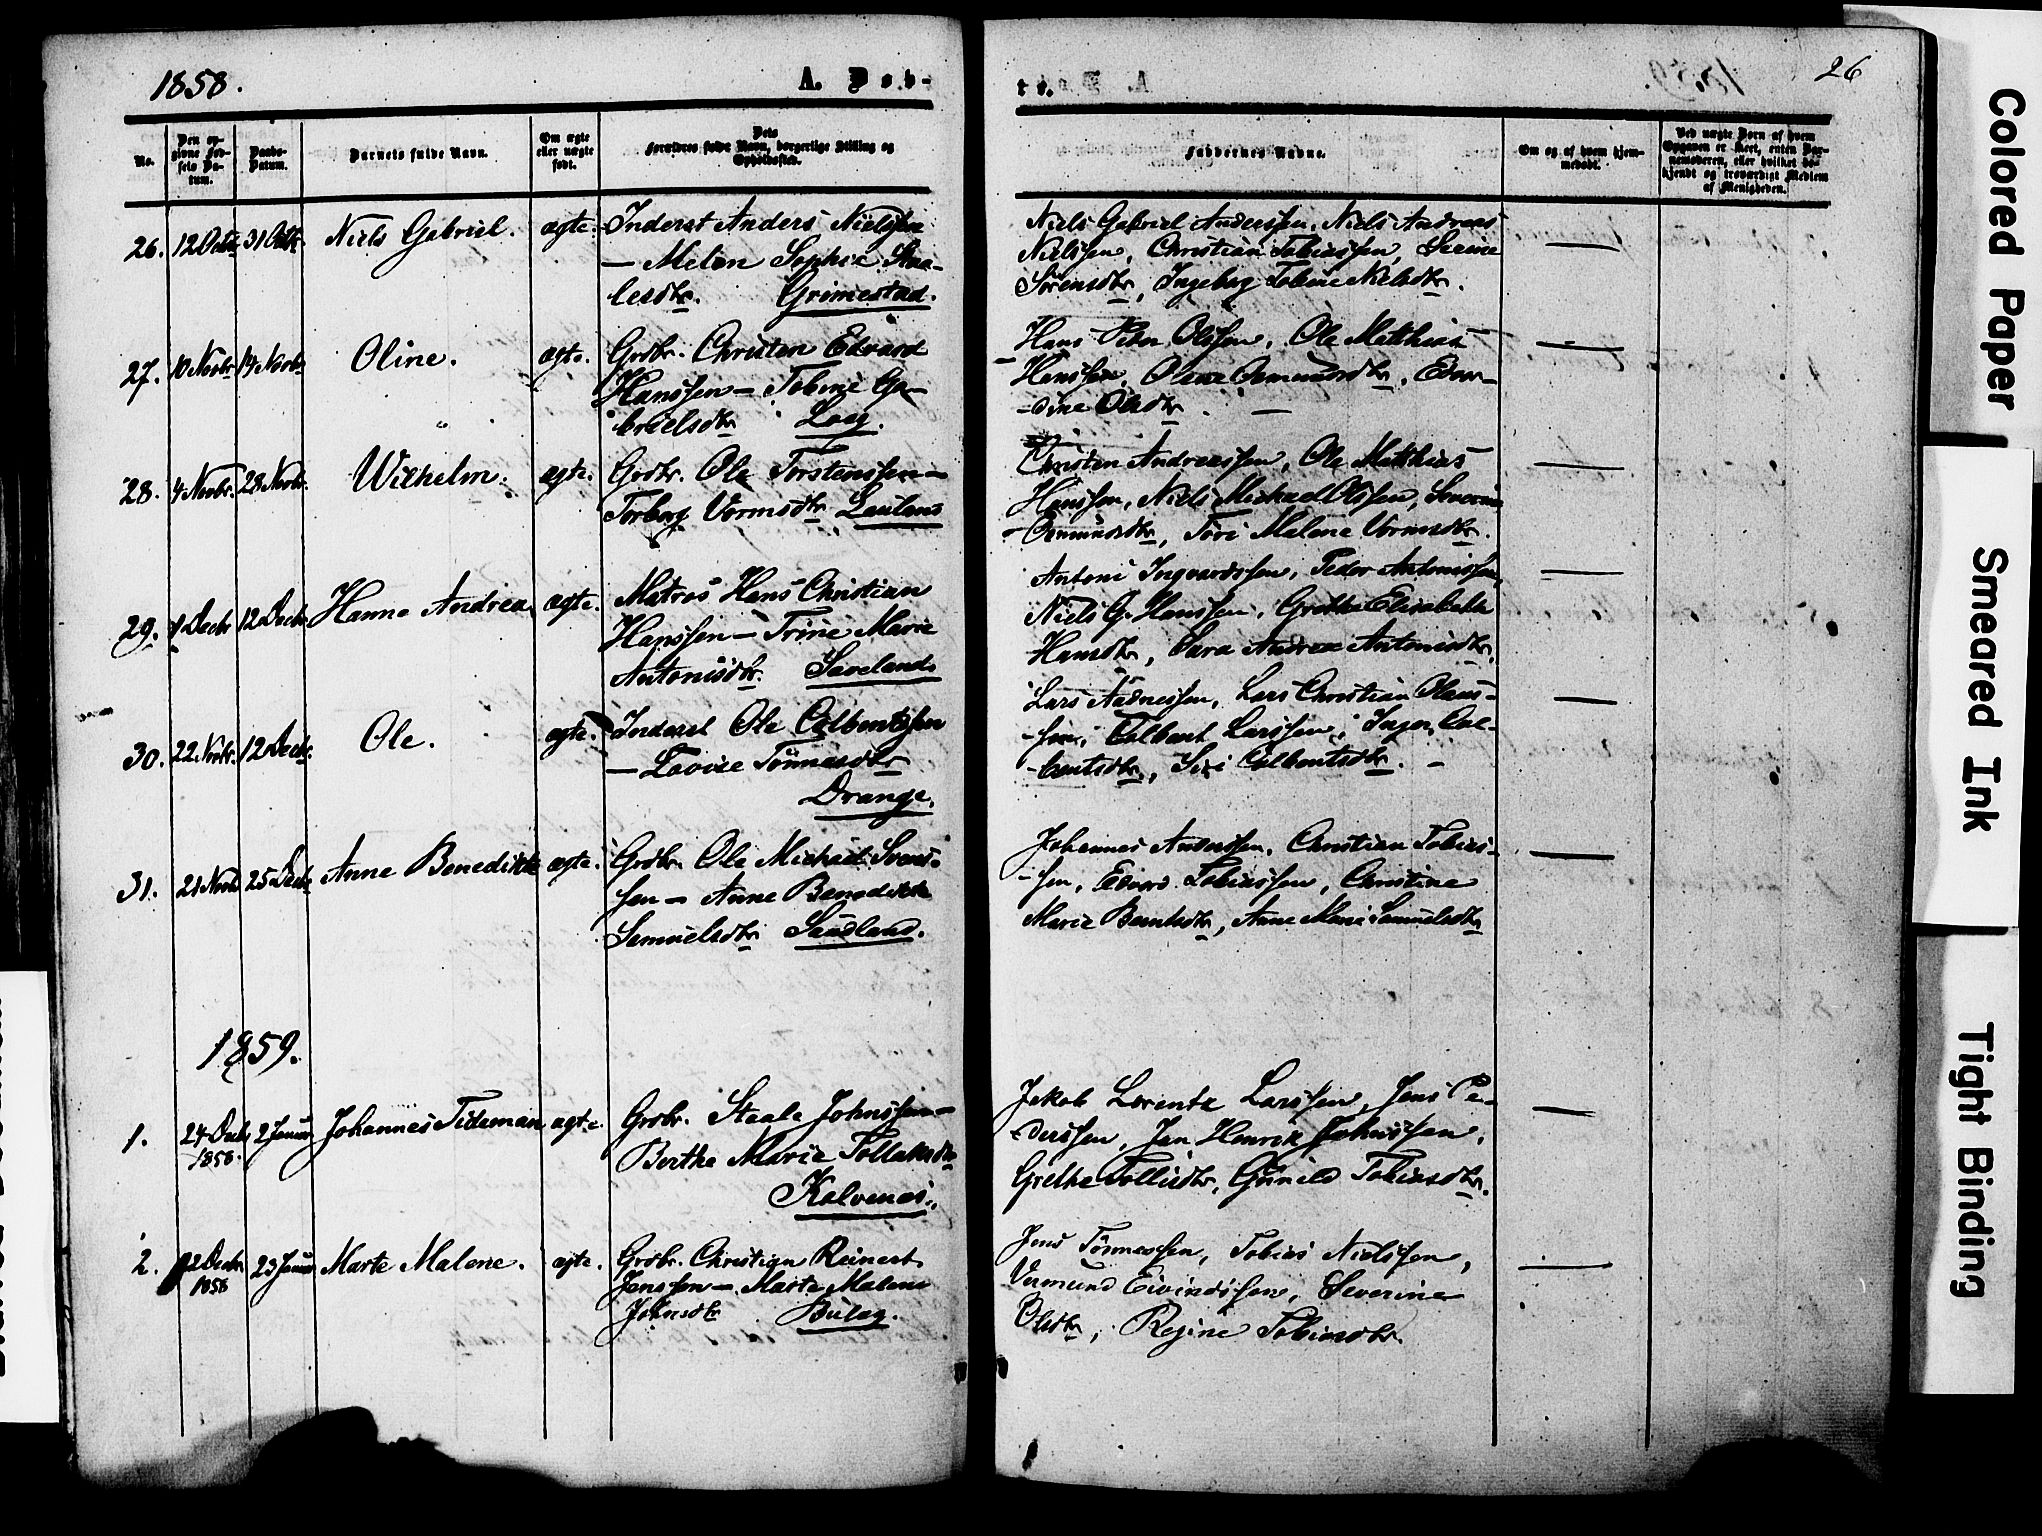 1858.
A. Døb-
te.
26
No.
Den op-
givne Fød-
sels Da-
tum.
Daabs-
Datum.
Barnets fulde Navn.
Om ægte
eller uægte
født.
Dets
Forældres fulde Navn, borgerlige Stilling og
Opholdssted.
Faddernes Navne.
Om og af hvem hjem-
medøbt.
Ved uægte Børn af hvem
Opgaven er skeet, enten Bar-
nemoderen, eller hvilket be-
kjendt og troværdigt Medlem
af Menigheden.
26. 12 Octbr 31 Octbr Niels Gabriel. ægte. Inderst Anders Nielssen
— Melen Sophie Staa-
lesdtr. Grimestad.
Niels Gabriel Anderssen, Niels Andreas
Nielssen, Christian Tobiassen, Serine
Sørensdtr, Ingeborg Tobine Nielsdtr. —
27. 10 Novbr 14 Novbr Oline. ægte. Grdbr. Christen Edvard
Hanssen — Tobine Ga-
brielsdtr Log.
Hans Peder Olssen, Ole Matthias
Hanssen, Olene Osmundsdtr, Edvar-
dine Olsdtr. —
28. 4 Novbr. 28 Novbr. Wilhelm. ægte. Grdbr. Ole Torstenssen —
Torborg Vormsdtr
Christen Andreassen, Ole Matthias
Hanssen, Niels Michael Olssen, Severine
Osmundsdtr, Tori Malene Vormsdtr. —
29. 1 Decbr 12 Decbr Hanne Andrea ægte. Matros Hans Christian
Hanssen — Trine Marie
Antonisdtr.
Antoni Ingvardssen, Peder Antonissen,
Niels G. Hanssen, Grethe Elisabeth
Hansdtr, Sara Andrea Antonisdtr. —
30. 22 Novbr. 12 Decbr. Ole. ægte. Inderst Ole Colbentssen
— Lovise Tønnesdtr
Drange.
Lars Aadnessen, Lars Christian Olaus-
sen, Colbent Larssen, Inger Col-
bentsdtr, Siri Colbentsdtr. —
31. 21 Novbr 25 Decbr Anne Benedikte ægte. Grdbr. Ole Michael Svens-
sen — Anne Benedikte
Samuelsdtr Sandland.
Johannes Anderssen, Christian Tobias-
sen, Edvard Tobiassen, Christine
Marie Berntsdtr, Anne Marie Samuelsdtr —
1859.
1. 24 Decbr 2 Januar Johannes Tideman ægte. Grdbr. Staale Johnssen —
1858.
Berthe Marie Tollaksdtr
Kalvenes.
Jakob Lorentz Larssen, Jens Pe-
derssen, Jan Henrik Johnssen,
Grethe Tollisdtr, Gunild Tobiasdtr. —
2. 12 Decbr 23 Januar Marte Malene. ægte. Grdbr. Christian Reinert
1858
Jenssen — Marte Malene
Johnsdtr Buløg.
Jens Tønnessen, Tobias Nielssen,
Vermund Eivindssen, Severine
Olsdtr, Regine Tobiasdtr. —
Colored Paper
Smeared Ink
Tight Binding